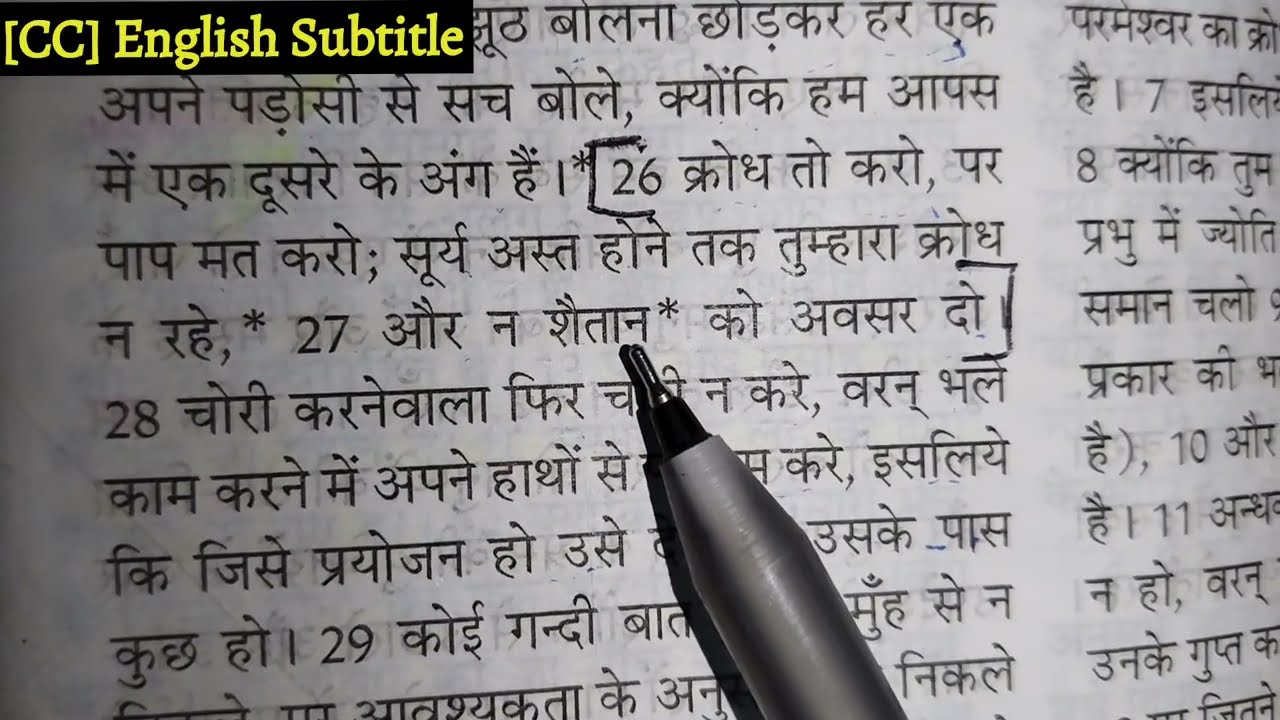 [CC] English Subtitle
झूठ बोलना छोड़कर हर एक
अपने पड़ोसी से सच बोले, क्योंकि हम आपस
में एक दूसरे के अंग हैं।* 26 क्रोध तो करो, पर
पाप मत करो; सूर्य अस्त होने तक तुम्हारा क्रोध
न रहे,* 27 और न शैतान* को अवसर दो।
28 चोरी करनेवाला फिर न करे, वरन् भले
काम करने में अपने हाथों से करे, इसलिये
कि जिसे प्रयोजन हो उसे उसके पास
कुछ हो। 29 कोई गन्दी बात मुँह से न
आवश्यकता के निकले
परमेश्वर का
है। 7
8 क्योंकि तुम
प्रभु में
समान चलो
प्रकार की
है), 10 और
है। 11
न हो, वरन्
उनके गुप्त